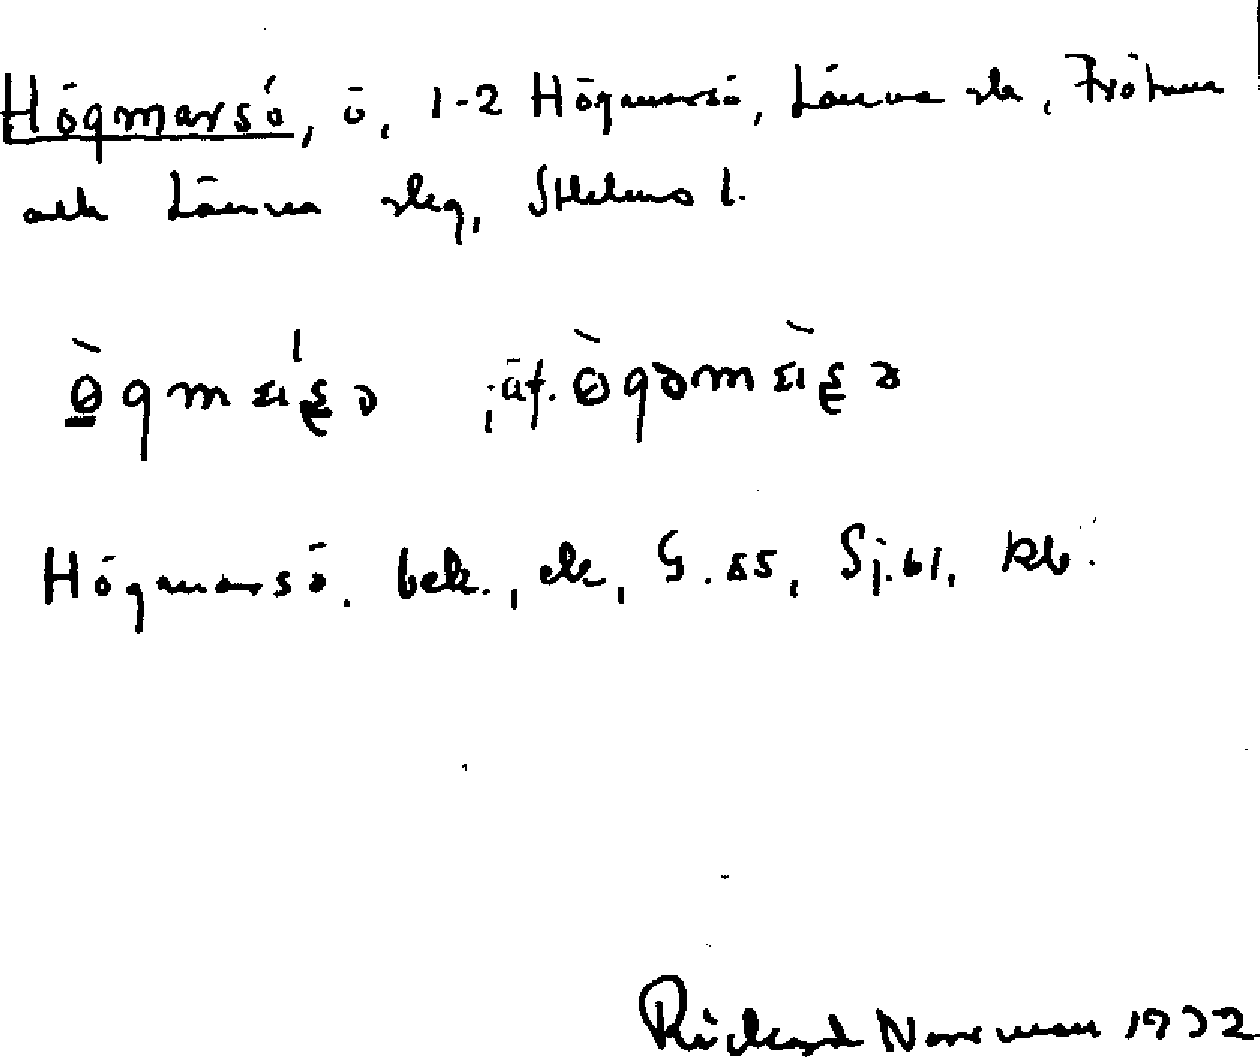 Högmarsö, ö, 1-2 Högmarsö, Länna sla, Frötuna
och Länna slg, Sthlms l.
äf.
Högmarsö. bek., ek, G. 55, Sj. 61, kb.
Rickard Norrman 1932